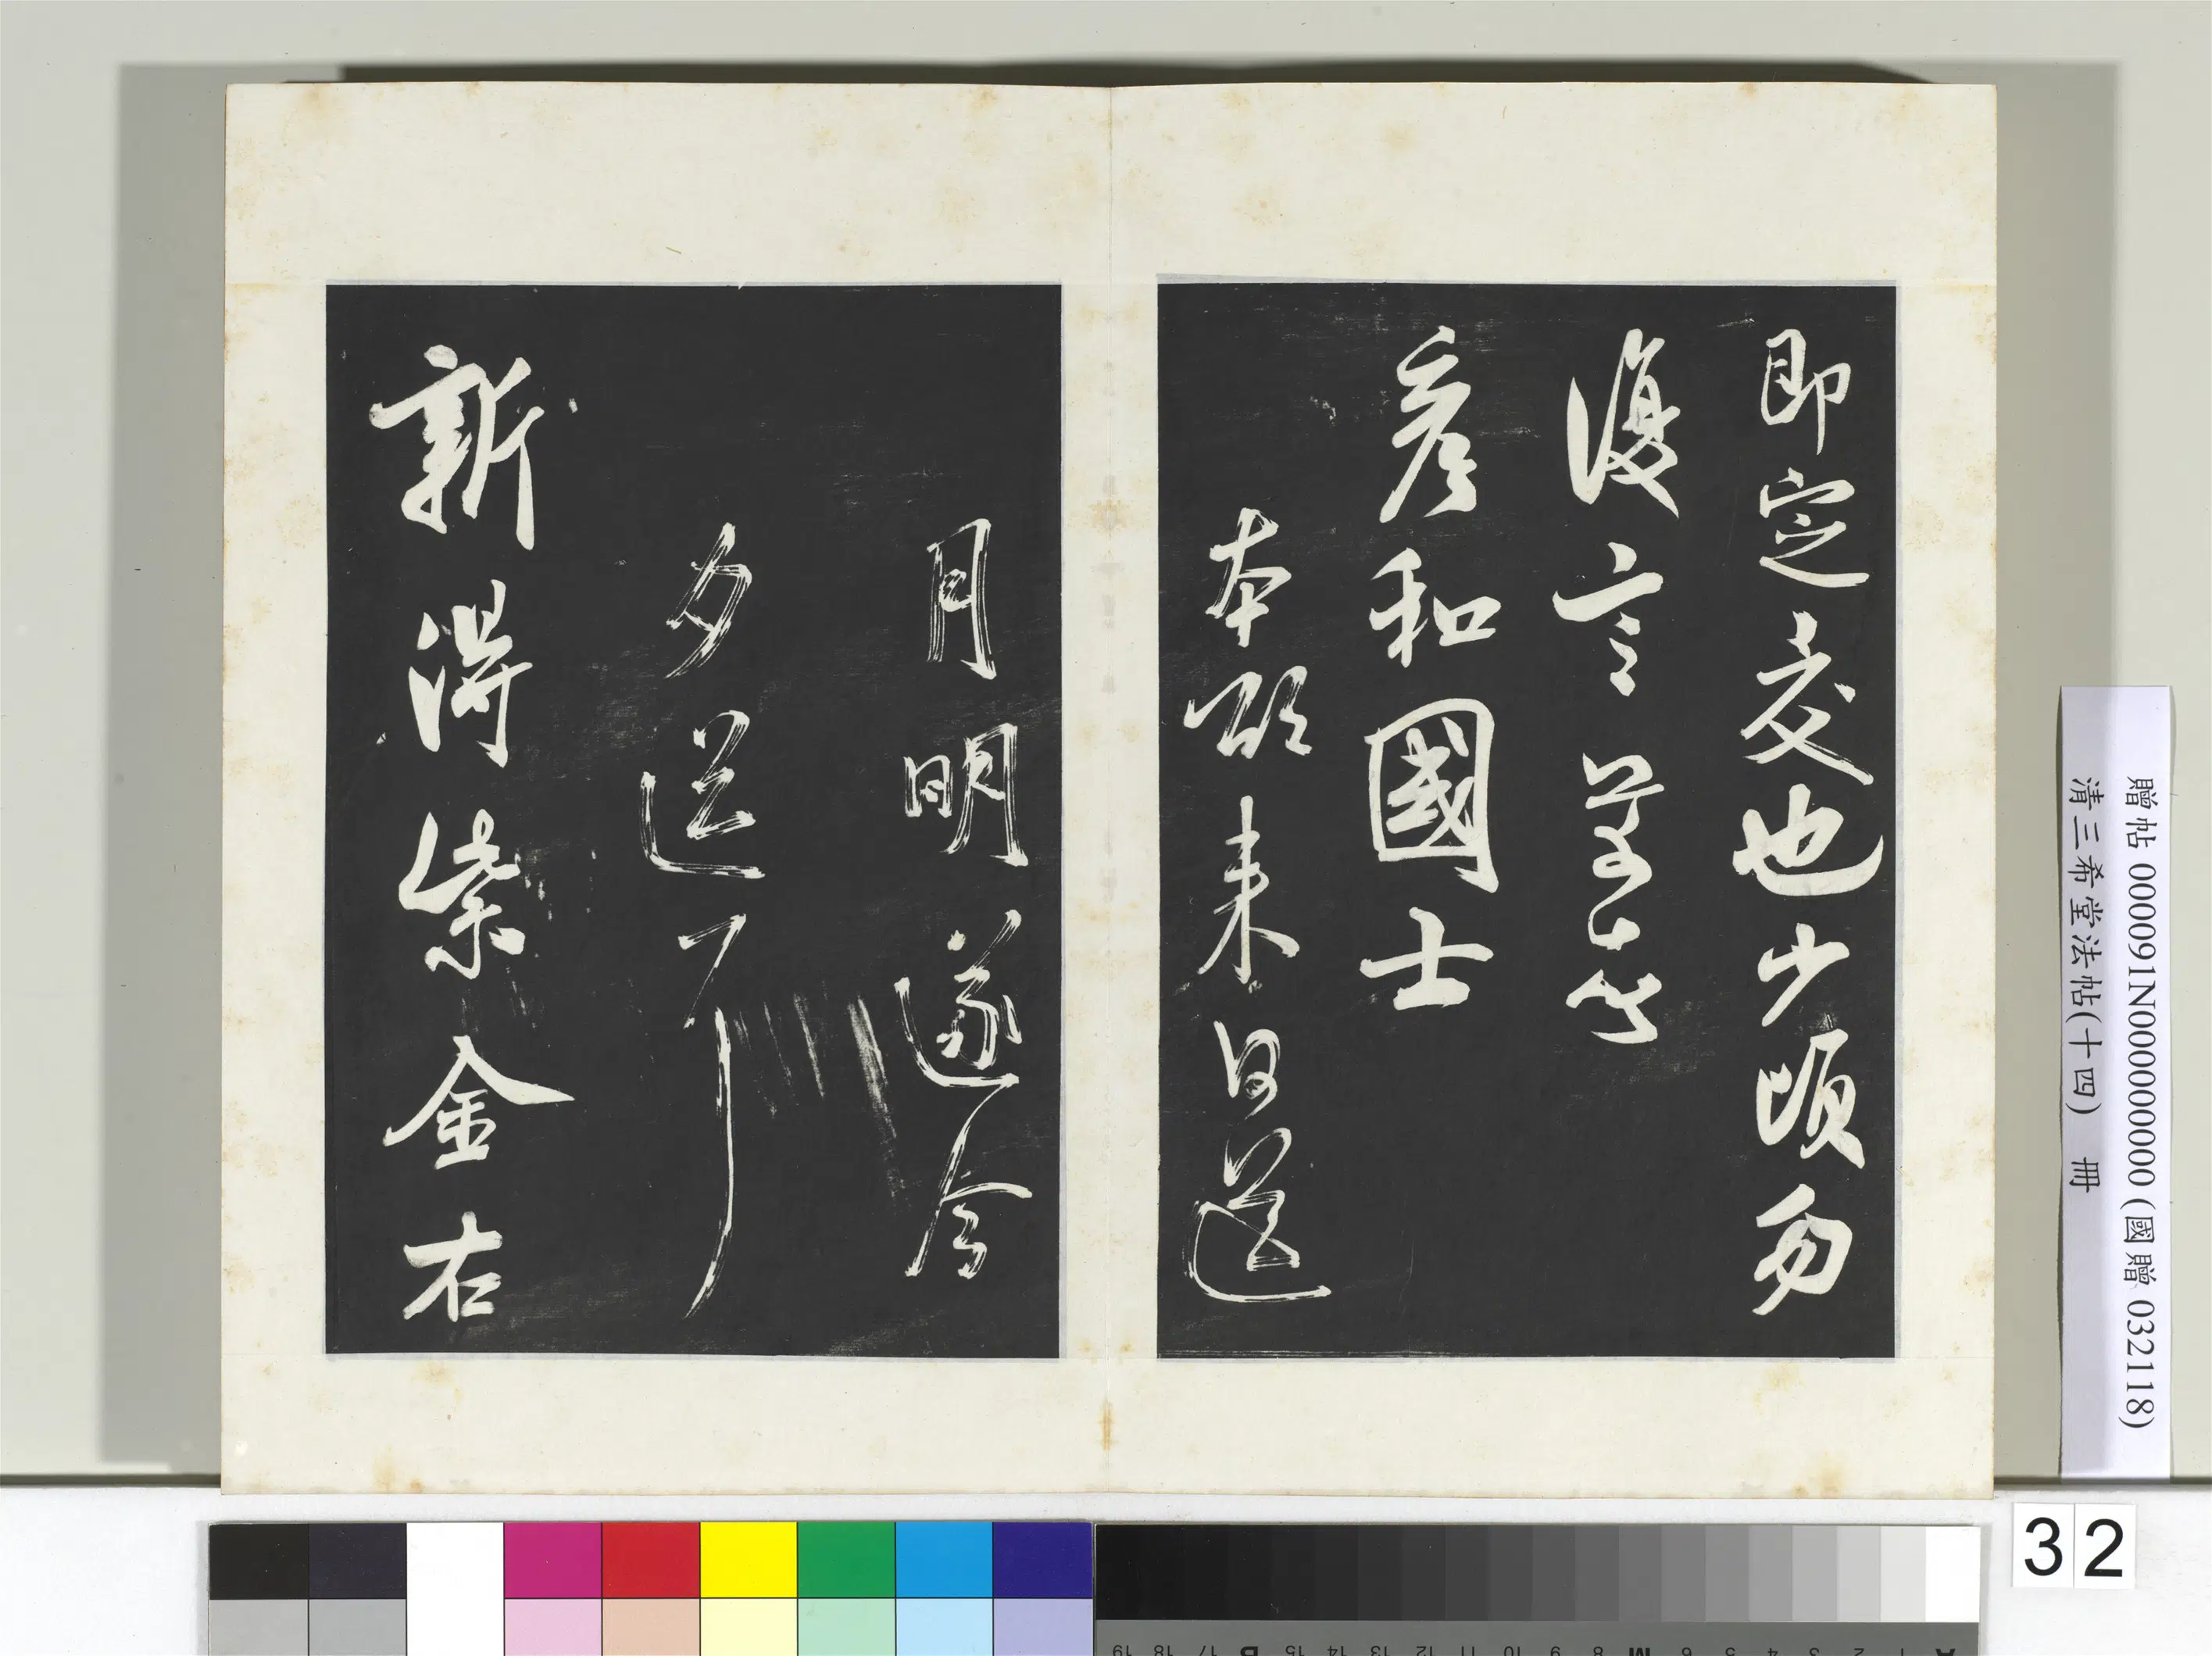 即定交也少頃勿
復言芾頓首
彥和國士
本欲來日送
月明遂今
夕送了
新得紫金右
贈帖 000091N000000000 (國贈 032118)
清三希堂法帖(十四) 冊
32
19 18 17 B 15 14 13 12 11 10 9 8 M 6 5 4 3 2 1 A